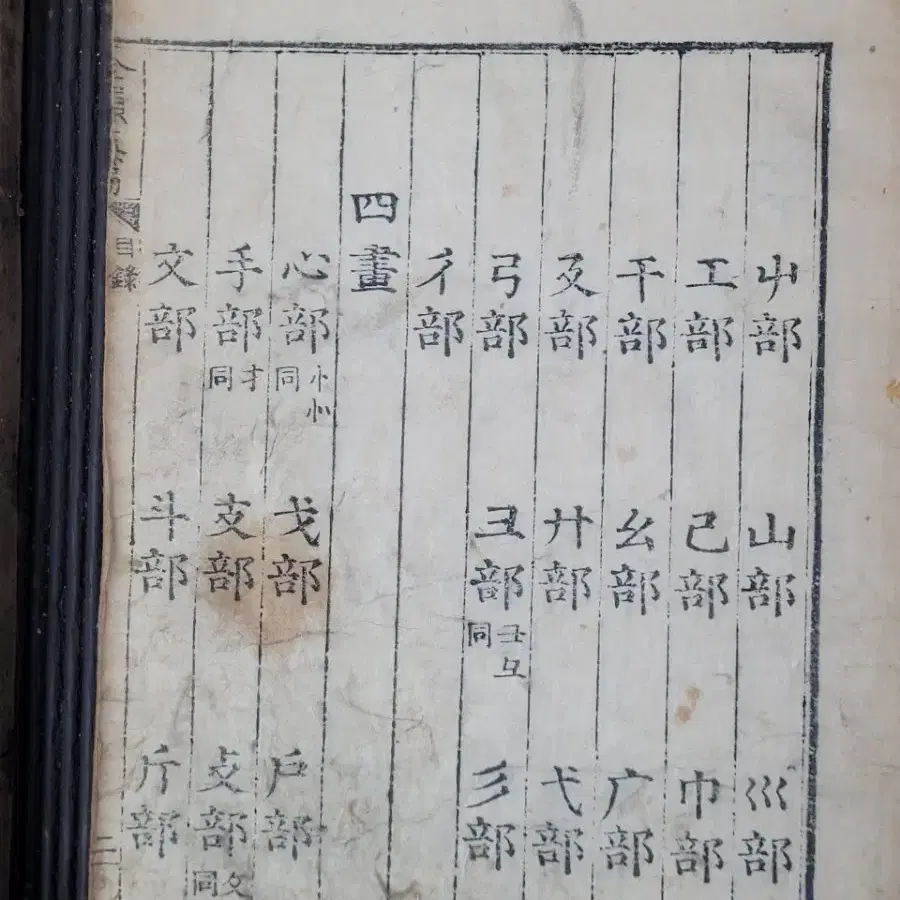 屮部 山部 巛部
工部 己部 巾部
干部 幺部 广部
廴部 廾部 弋部
弓部 彐部 ⺕彑同 彡部
彳部
四畫
心部 忄㣺同 戈部 戶部
手部 扌同 支部 攴部 攵同
文部 斗部 斤部
目錄 二